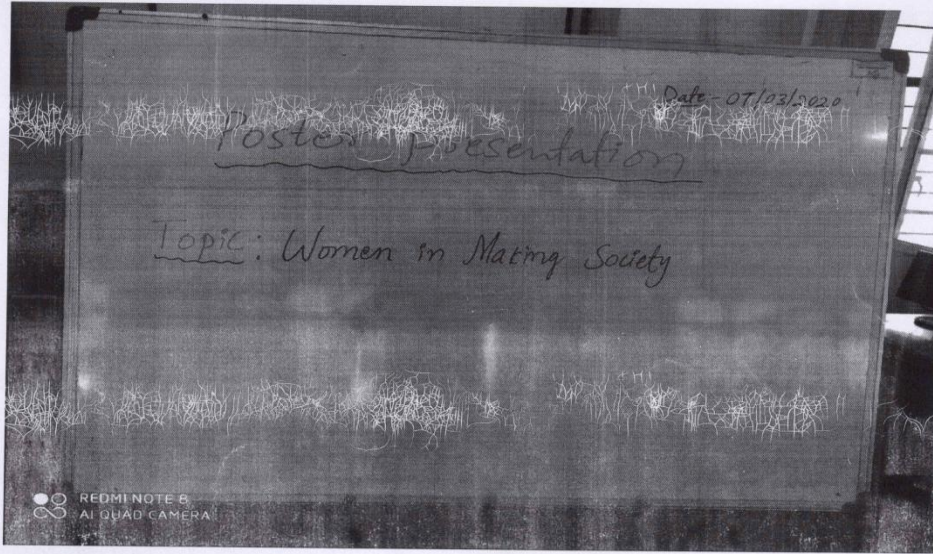 Date - 07/03/2020
Poster presentation
Topic: Women in Making Society
REDMI NOTE 8
AI QUAD CAMERA